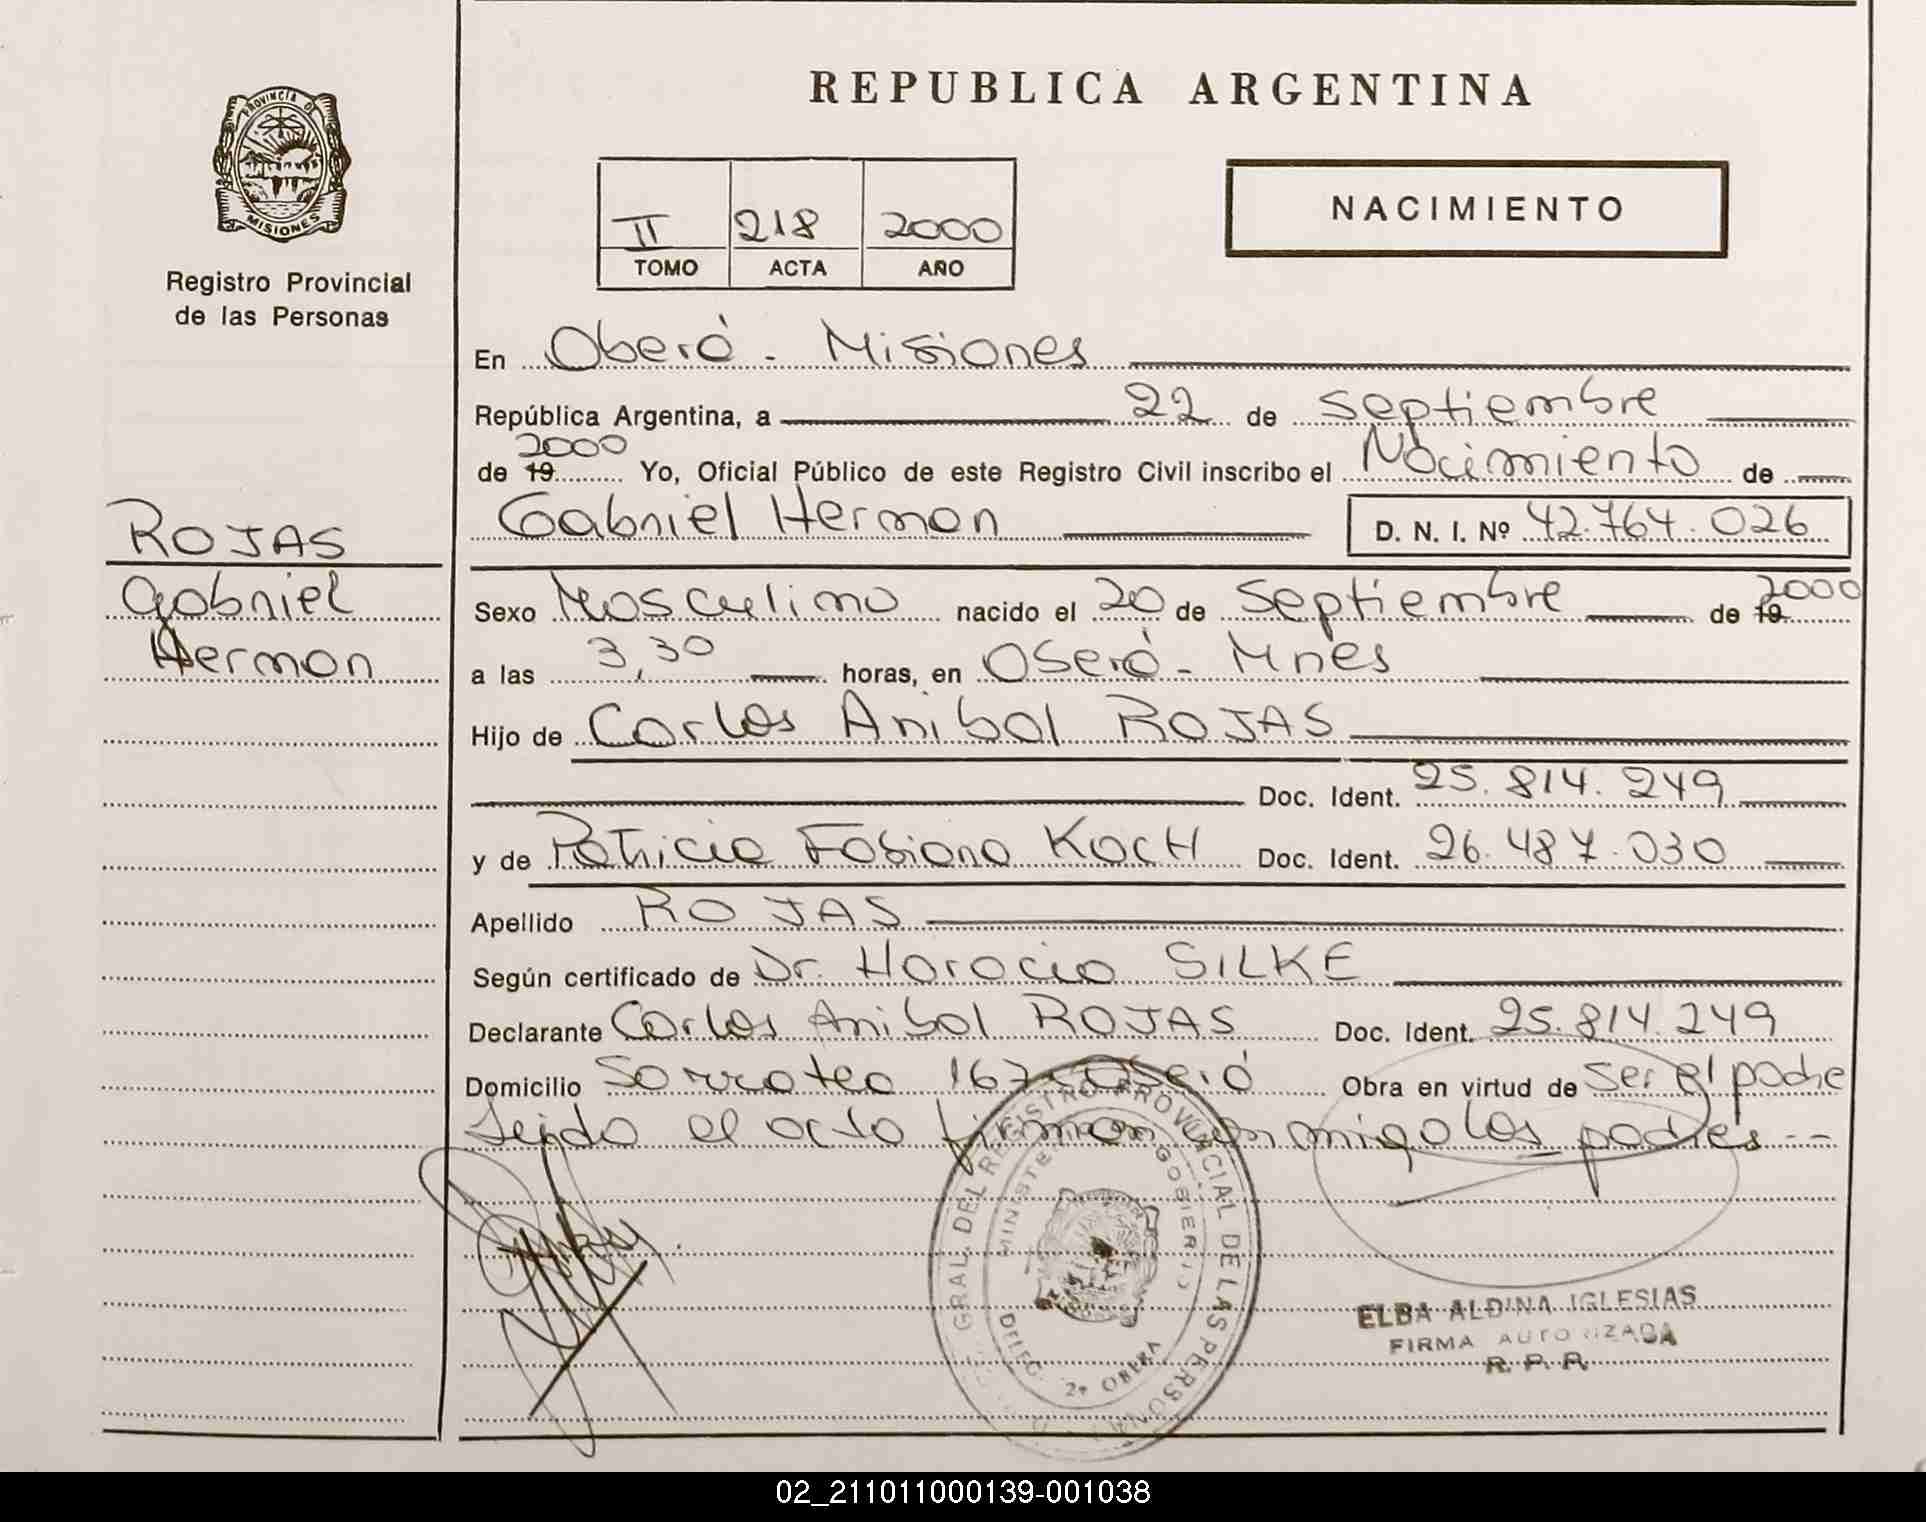 PROVINCIA DE
MISIONES
Registro Provincial
de las Personas
ROJAS
Gabriel
Hernon
REPUBLICA ARGENTINA
II 218 2000
TOMO ACTA AÑO
NACIMIENTO
En Oberá - Misiones
República Argentina, a 22 de septiembre
2000
de 19 Yo, Oficial Público de este Registro Civil inscribo el Nacimiento de
Gabriel Hernon D. N. I. Nº 42.764.026
Sexo Masculino nacido el 20 de Septiembre de 19 2000
a las 3,30 horas, en Oberá - Mnes
Hijo de Carlos Anibal ROJAS
Doc. Ident. 25.814.249
y de Patricia Fabiana KOCH Doc. Ident. 26.487.030
Apellido ROJAS
Según certificado de Dr. Horacio SILKE
Declarante Carlos Anibal ROJAS Doc. Ident. 25.814.249
Domicilio Sarratea 167 - Oberá Obra en virtud de Ser el padre
Leido el acto firman conmigo los padres --
GRAL. DEL REGISTRO PROVINCIAL DE LAS PERSONAS
DELEG. 2ª OBERA
ELBA ALDINA IGLESIAS
FIRMA AUTORIZADA
R. P. P.
02_211011000139-001038